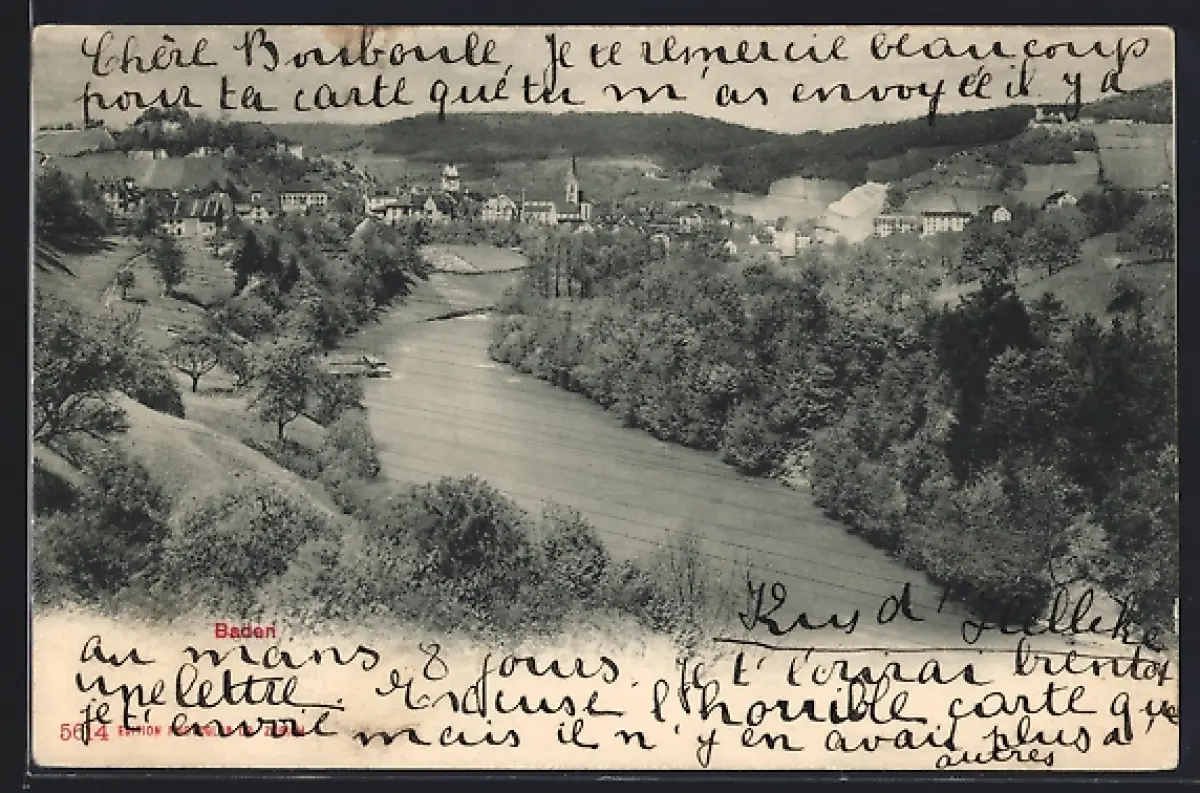 Chère Bouboule, Je te remercie beaucoup
pour ta carte que tu m'as envoyée il y a
Kus d'Hellike
Baden
au moins 8 jours. Je t'écrirai bientôt
une lettre. Excuse l'horrible carte que
je t'envoie mais il n'y en avait plus d'
autres
5614 EDITION ZURICH